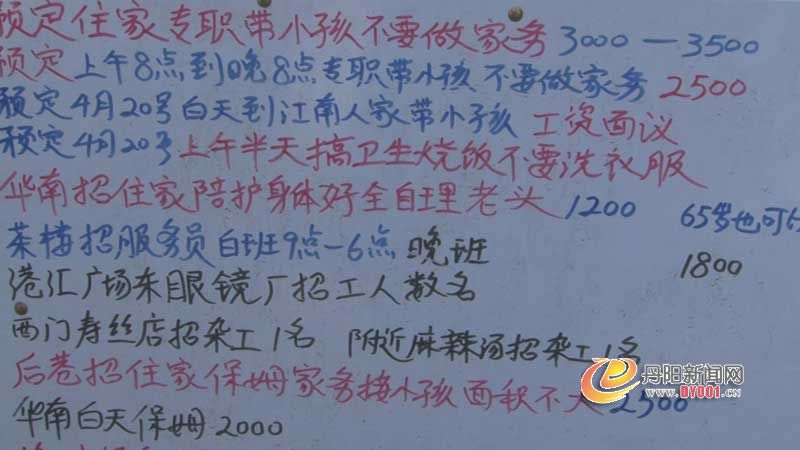 预定住家专职带小孩不要做家务 3000—3500
预定上午8点到晚8点专职带小孩 不要做家务 2500
预定4月20号白天到江南人家带小孩 工资面议
预定4月20号上午半天搞卫生烧饭不要洗衣服
华南招住家陪护身体好全自理老头 1200 65岁也可
茶楼招服务员白班9点-6点 晚班 1800
港汇广场东眼镜厂招工人数名
西门寿丝店招杂工1名 附近麻辣汤招杂工1名
后巷招住家保姆家务接小孩面积不大 2500
华南白天保姆2000
丹阳新闻网
WWW.DY001.CN